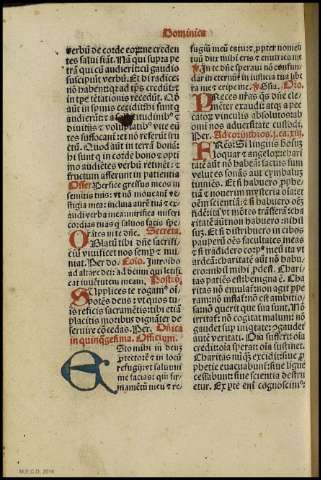 Dominica
verbū de corde eorū ne creden
tes salui fiāt. Nā qui supra pe
trā qui cū audierīt cū gaudio
suscipiūt verbū. Et hi radices
nō habent: q̄ ad tp̄s credūt: ⁊
in tpe tētationis recedūt. Qd
aūt in spinis cecidit: hi sunt q̄
audierūt: ⁊ a solicitudinib⁹ ⁊
diuitijs ⁊ voluptatib⁹ vite eū
tes suffocant̄: et nō referūt fru
ctū. Quod aūt in terrā bonā:
hi sunt q̄ in corde bono ⁊ opti
mo audiētes verbū retinēt: et
fructum afferunt in patientia
Offer. Perfice gressus meos in
semitis tuis: vt nō moueant̄ ve
stigia mea: inclina aurē tuā ⁊ ex
audi verba mea: mirifica miseri
cordias tuas q̄ saluos facis spe
rātes in te dn̄e. Secreta.
Oblatū tibi dn̄e sacrifi
ciū viuificet nos semp ⁊ mu
niat. Per do. Cōio. Introibo
ad altare dei: ad deum qui letifi
cat iuuentutem meam. Postcō.
Supplices te rogam⁹ oī
potēs deus: vt quos tuis
reficis sacramētis: tibi etiā
placitis moribus dignāter de
seruire cōcedas. Per. Dnica
in quinq̄gesima. Officium.
Esto mihi in deuz
ptectorē ⁊ in locū
refugij: vt saluum
me facias: qm̄ fir
mamētū meū ⁊ re
fugiū meū es tu: ⁊ ppter nomen
tuū dux mihi eris ⁊ enutries me.
In te dn̄e speraui nō confun
dar in eternū: in iusticia tua libe
ra me ⁊ eripe me. Oro.
Preces nr̄as q̄s dn̄e cle
mēter exaudi: atq̄ a pec
catorū vinculis absolutos
ab omni nos aduersitate custodi.
Per. Ad corinthios. j. ca. xiij.
Fres: Si linguis hoīuz
loquar ⁊ angeloꝝ: charita
tē aūt nō habeā: factus sum
velut es sonās aut cymbalum
tinniēs. Et si habuero pphe
tiā ⁊ nouerim mysteria oīa: ⁊
oēm sciētiā: ⁊ si habuero oēz
fidē: ita vt mōtes trāsferā: cha
ritatē aūt nō habuero: nihil
suz. Et si distribuero in cibos
pauperū oēs facultates meas
⁊ si tradidero corp⁹ meū ita vt
ardeā: charitatē aūt nō habu
ero: nihil mihi pdest. Chari
tas patiēs est: benigna ē. Cha
ritas nō emulat̄: nō agit ppe
ram: nō inflat̄: nō est ambitio
sa: nō querit que sua sunt. Nō
irritat̄: nō cogitat malum: nō
gaudet sup iniquitate: ⁊gaudet
autē veritati. Oīa suffert: oīa
credit: oīa sperat: oīa sustinet.
Charitas nūq̄ excidit: siue p
phetie euacuabunt̄: siue lingue
cessabunt: siue scientia destru
etur. Ex pte eni cognoscim⁹: